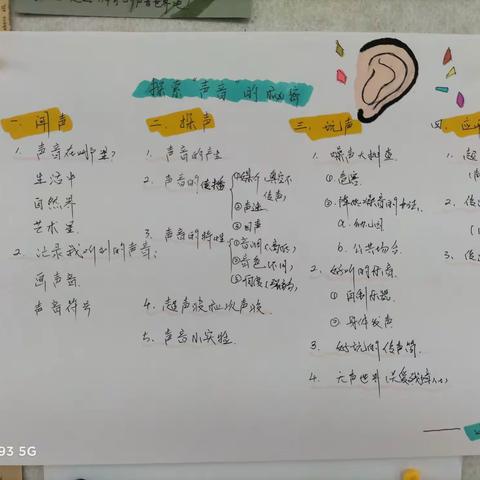 探索“声音”的秘密
一. 闻声
1. 声音在哪里?
生活中
自然界
艺术里
2. 记录我听到的声音:
画声音
声音符号
二. 探声
1. 声音的产生
2. 声音的传播
①媒介(真空不
传声)
②声速
③回声
3. 声音的特性
①音调(高低)
②音色(不同)
③响度(强弱)
4. 超声波和次声波
5. 声音小实验
三. 玩声
1. 噪声大调查
①危害
②降低噪音的办法
a. 幼儿园
b. 公共场合
2. 好听的乐音
①自制乐器
②身体发声
3. 好玩的传声筒
4. 无声世界(关爱残障人)
四. 应
1. 超
2. 传
3. 传
93 5G